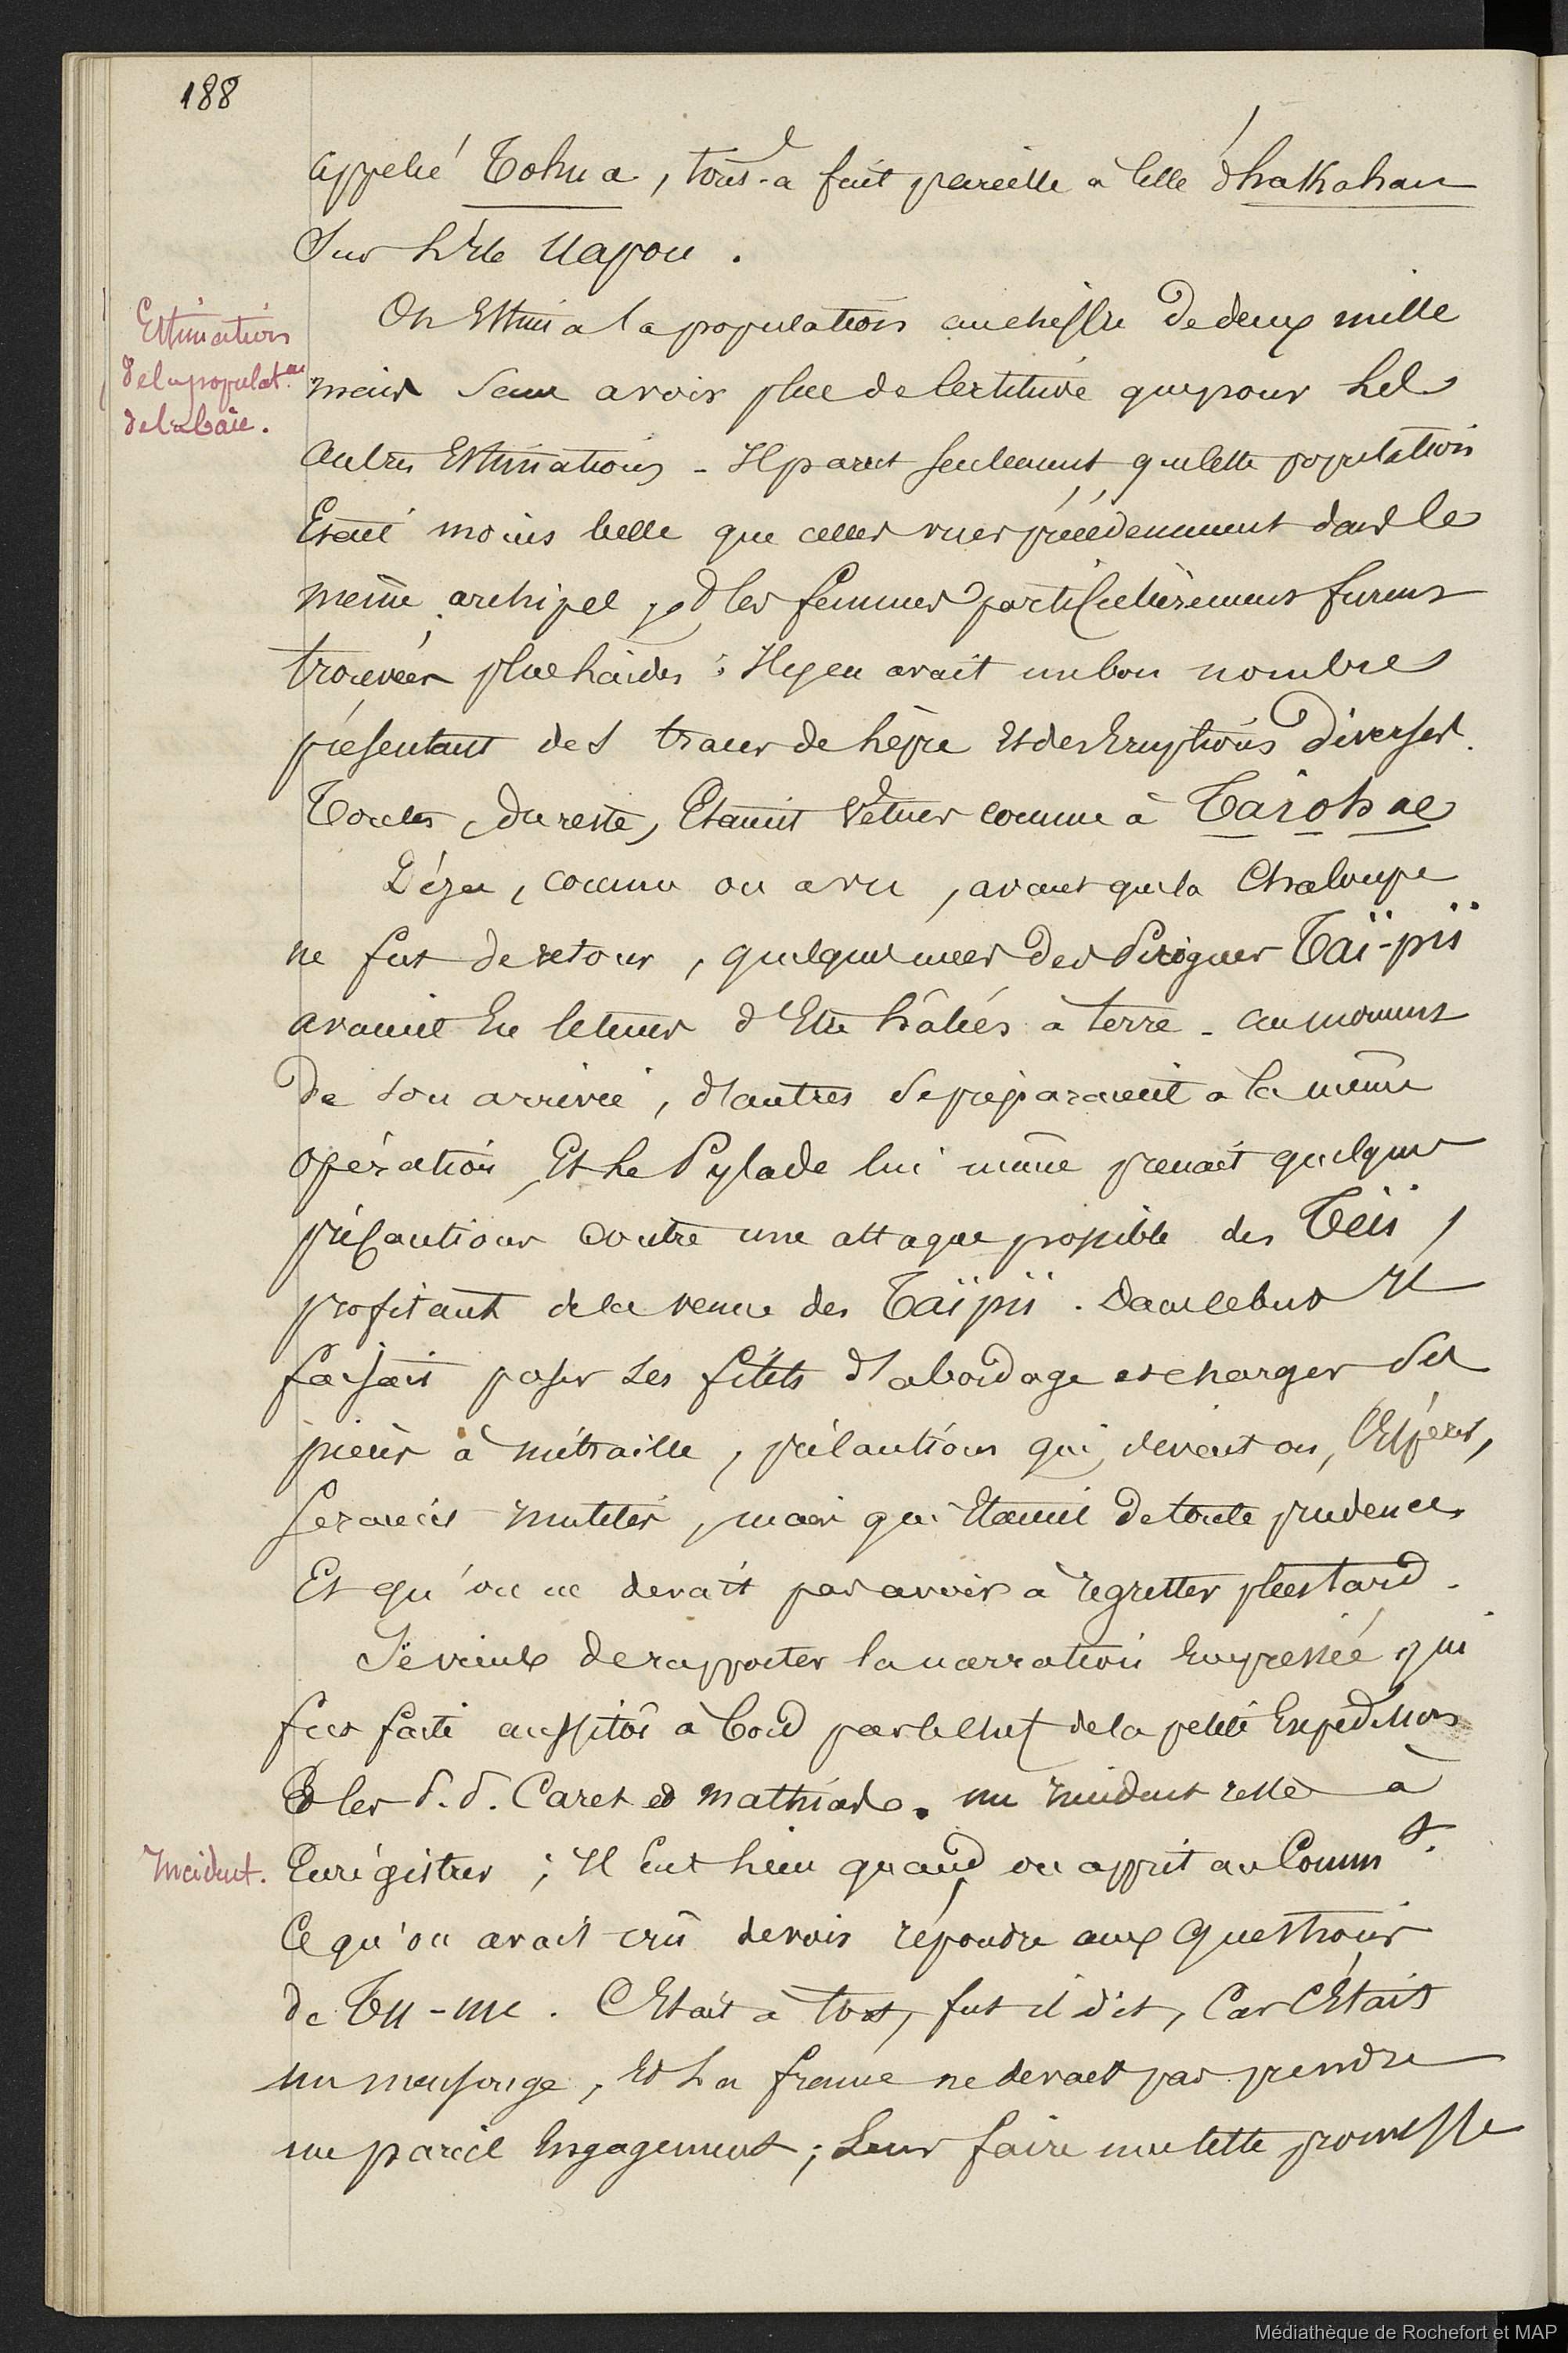 188
appelé Tohua, tous-à fait pareille à celle d'hakahau
Sur l'Ile Uapou.
On Estima la population au chiffre de deux mille
Estimation
de la populat.on
de la baie.
mais sans avoir plus de certitude que pour les
autres Estimations - Il parut seulement que cette population
Etait moins belle que celles vues précédemment dans le
même archipel, et les femmes particulièrement furent
trouvées plus laides : Il y en avait un bon nombre
présentant des traces de lèpre et des Eruptions diverses.
Toutes, du reste, Etaient vêtues comme à Taiohae
Déja, comme on a vu, avant que la Chaloupe
ne fut de retour, quelques unes des Pirogues Taï-pïï
avaient Eu le tems d'Etre hâlées à terre - au moment
de son arrivée, d'autres se préparaient à la même
opération, Et Le Pylade lui même prenait quelques
précautions contre une attaque possible des Teïs,
profitant de la venue des Taïpïï. Dans ce but Il
faisait poser ses filets d'abordage et charger ses
pièces à mitraille, précautions qui, devait on, Espérer,
seraient inutiles, mais qui Etaient de toute prudence
Et qu'on ne devait pas avoir à regretter plus tard.
Je viens de rapporter la narration Empressée qui
fut faite aussitôt à bord par le chef de la petite Expédition
Et les P.P. Caret et Mathias. un Incident reste à
Incident.
Enrégistrer ; Il Eut lieu quand on apprit au Comm.t
Ce qu'on avait crû devoir répondre aux questions
de Te-me. C'Etait à tort, fut il dit, Car C'Etait
un mensonge, Et La france ne devait pas prendre
un pareil Engagement ; Leur faire une cette promesse
Médiathèque de Rochefort et MAP